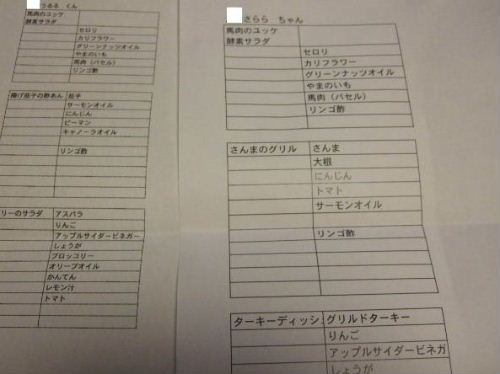 うるる くん
馬肉のユッケ
酵素サラダ
セロリ
カリフラワー
グリーンナッツオイル
やまのいも
馬肉(パセル)
リンゴ酢
揚げ茄子の酢あん 茄子
サーモンオイル
にんじん
ピーマン
キャノーラオイル
リンゴ酢
リーのサラダ アスパラ
りんご
アップルサイダービネガー
しょうが
ブロッコリー
オリーブオイル
かんてん
レモン汁
トマト
さらら ちゃん
馬肉のユッケ
酵素サラダ
セロリ
カリフラワー
グリーンナッツオイル
やまのいも
馬肉(パセル)
リンゴ酢
さんまのグリル さんま
大根
にんじん
トマト
サーモンオイル
リンゴ酢
ターキーディッシ グリルドターキー
りんご
アップルサイダービネガ
しょうが